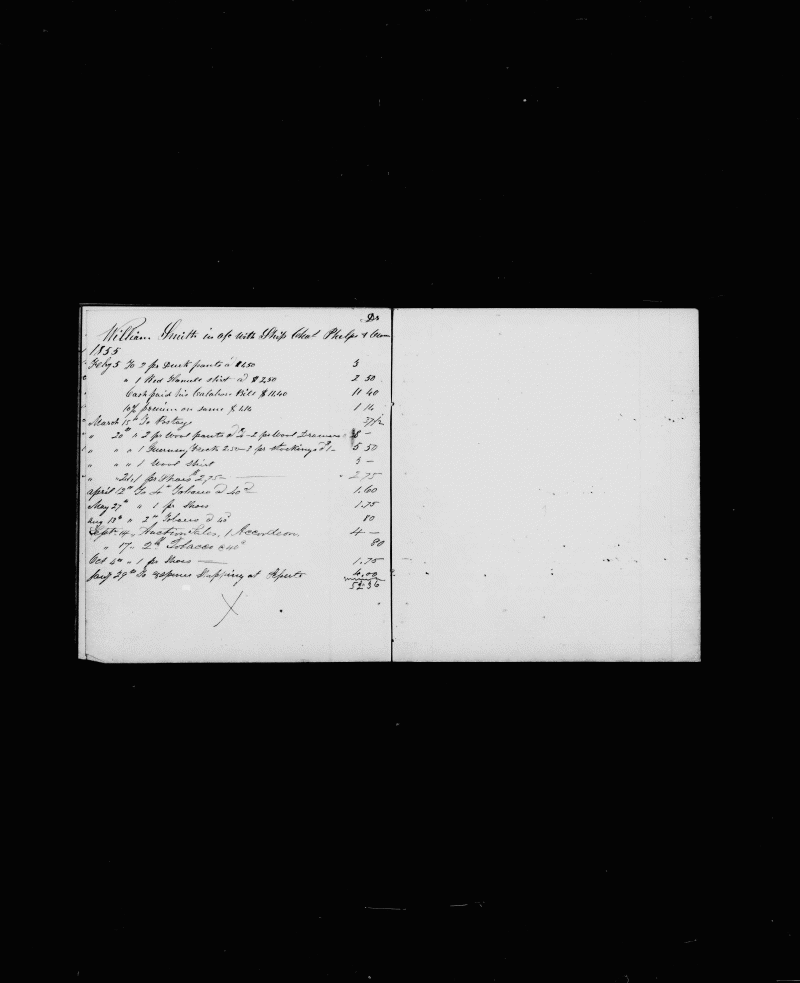 Dr
William Smith in a/c with Ship Chas Phelps &
1855
Feby 5 To 2 pr Duck pants a $1,50 3
" 1 Red Flannel shirt a $2,50 2 50
Cash paid his Bill $11,40 11 40
10% premium on same $1,14 1 14
March 15th To Postage 37/2
" 20th " 2 pr Wool pants a 2 pr Wool Drawers 8 –
" " " 1 Guernsey Frock 2.50 – 2 pr stockings a 1– 5 50
" " " 1 Wool shirt 3 –
" 24 1 pr Shoes 2,75 2.75
April 12th To 4lb Tobacco a 40c 1.60
May 27th " 1 pr Shoes 1.75
Aug 18th " 2lb Tobacco a 40 80
Sept. 14. Auction Sales, 1 Accordeon, 4 –
" 17. 2lb Tobacco a 40c 80
Oct 4th " 1 pr Shoes 1.75
29th To expense Shipping at 4.00
52.36
X